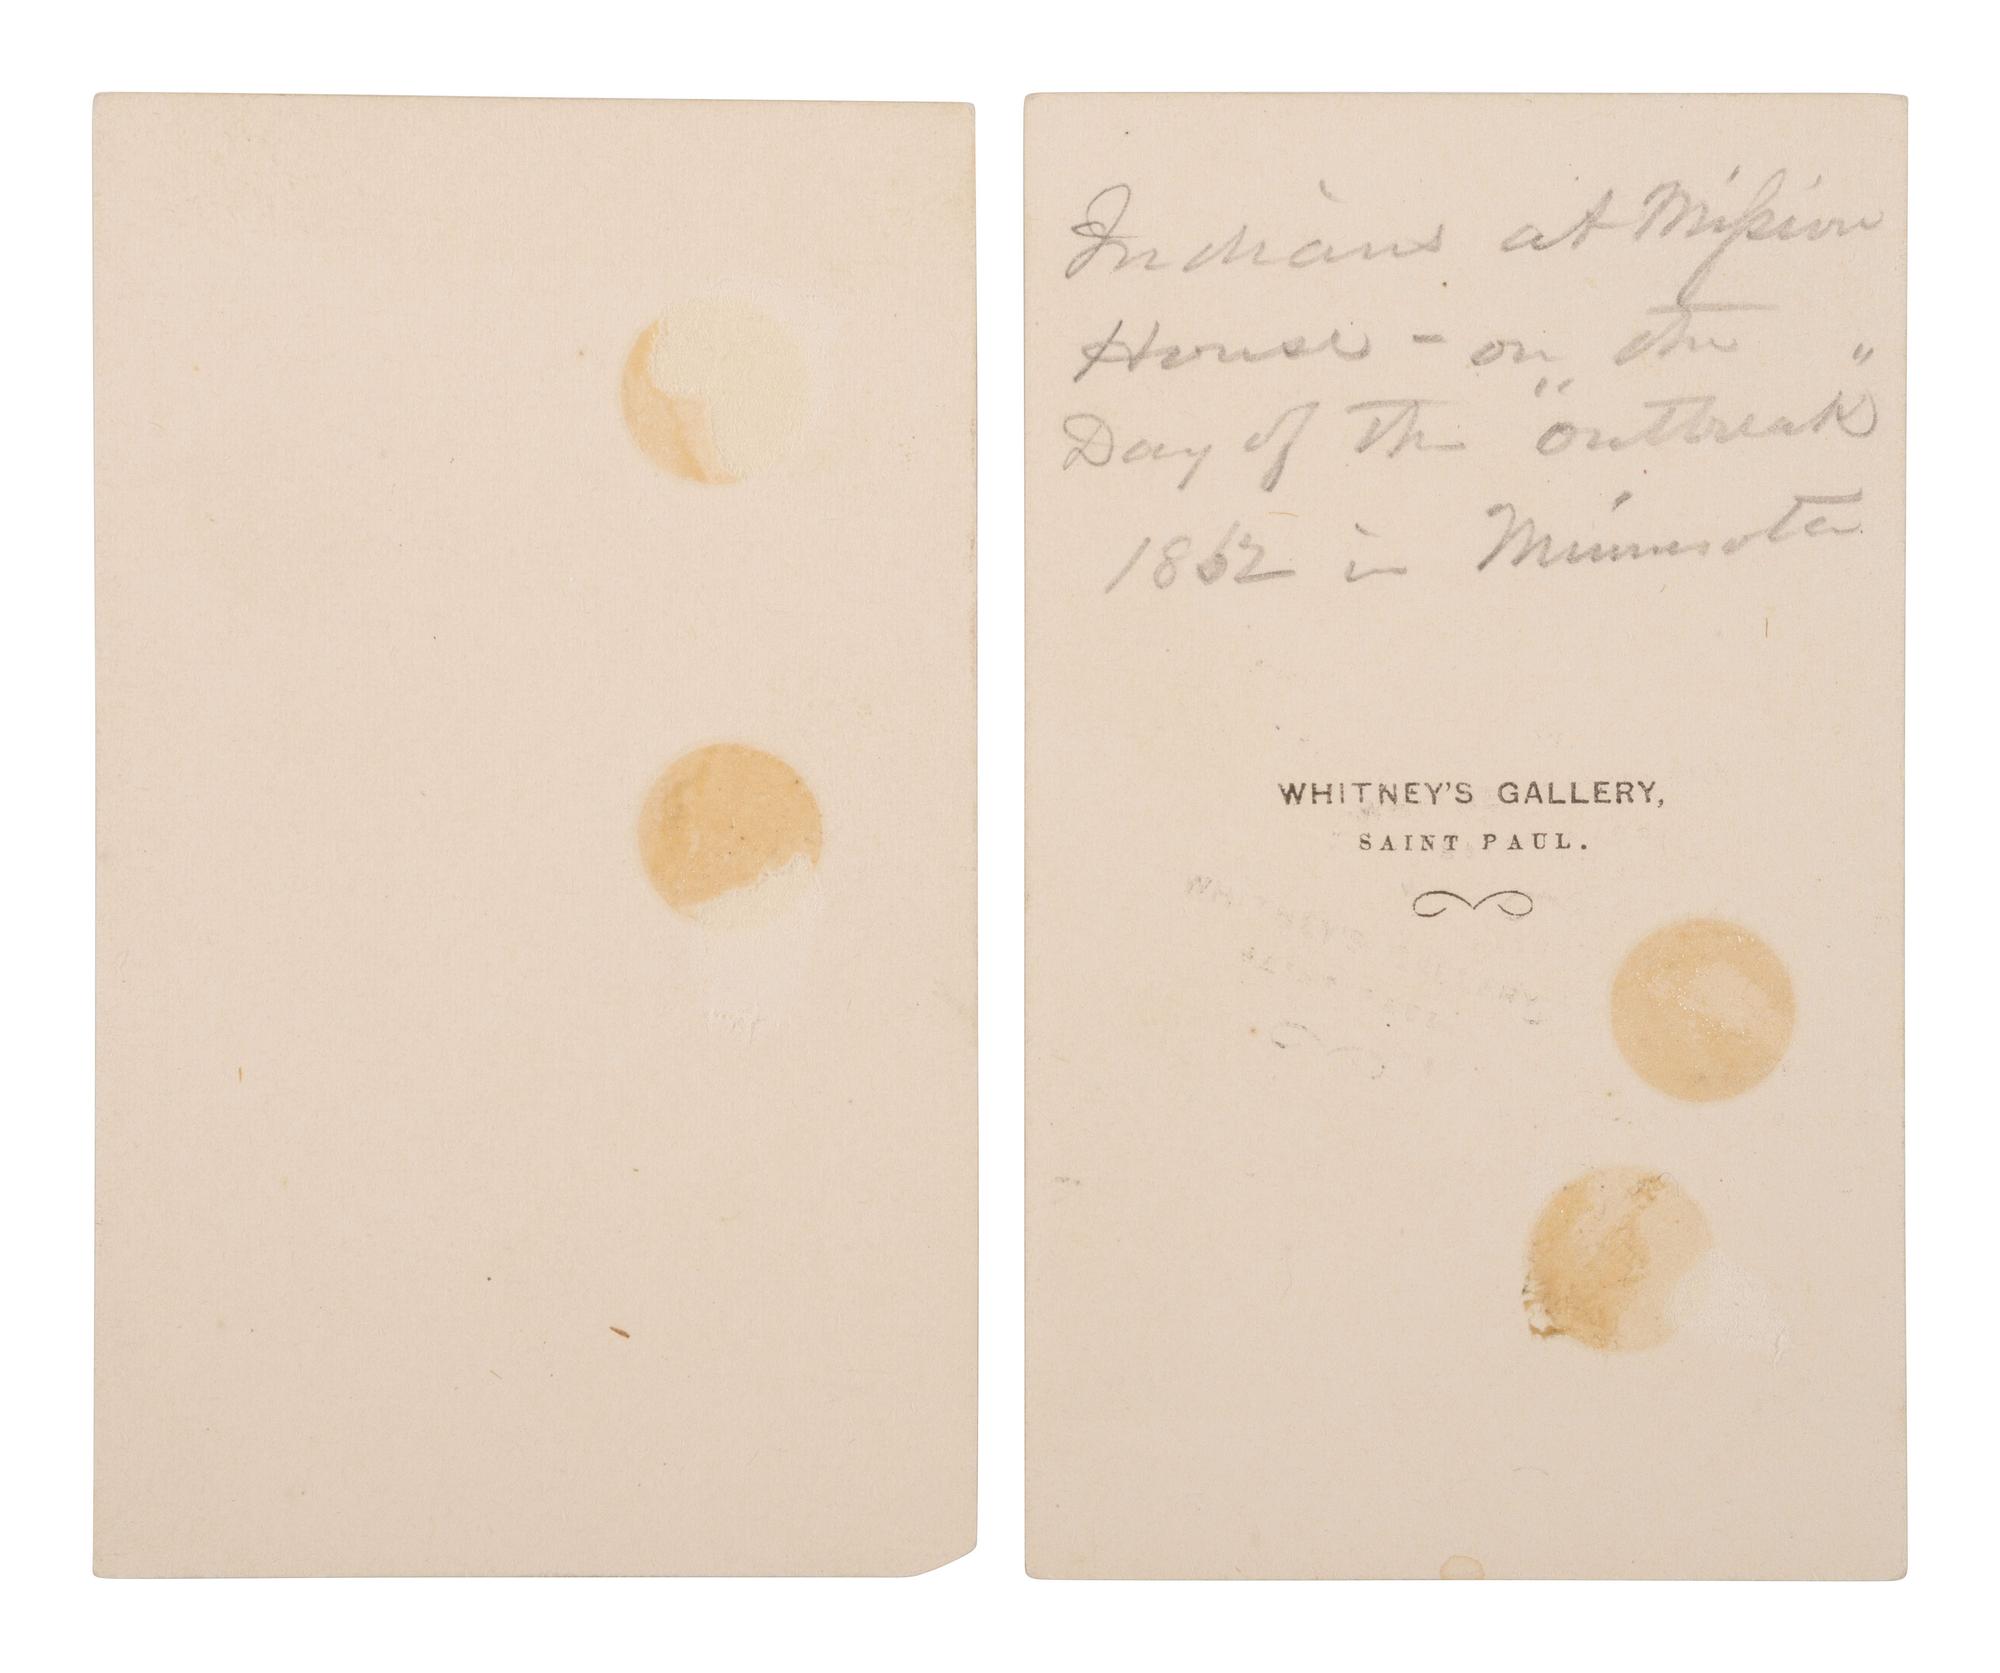 Indians at Mission
House - on the
Day of the "outbreak"
1862 in Minnesota
WHITNEY'S GALLERY,
SAINT PAUL.